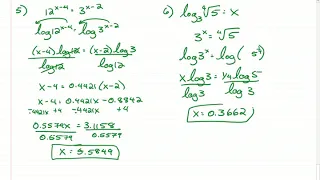 5) 12^(x-4) = 3^(x-2)
log12^(x-4) = log3^(x-2)
(x-4)log12 = (x-2)log3
log12 log12
x-4 = 0.4421(x-2)
x-4 = 0.4421x - 0.8842
-.4421x +4 -.4421x +4
0.5579x = 3.1158
0.5579 0.5579
x = 5.5849
6) log₃ ∜5 = x
3^x = ∜5
log3^x = log(5^¼)
x log3 = ¼ log5
log3 log3
x = 0.3662